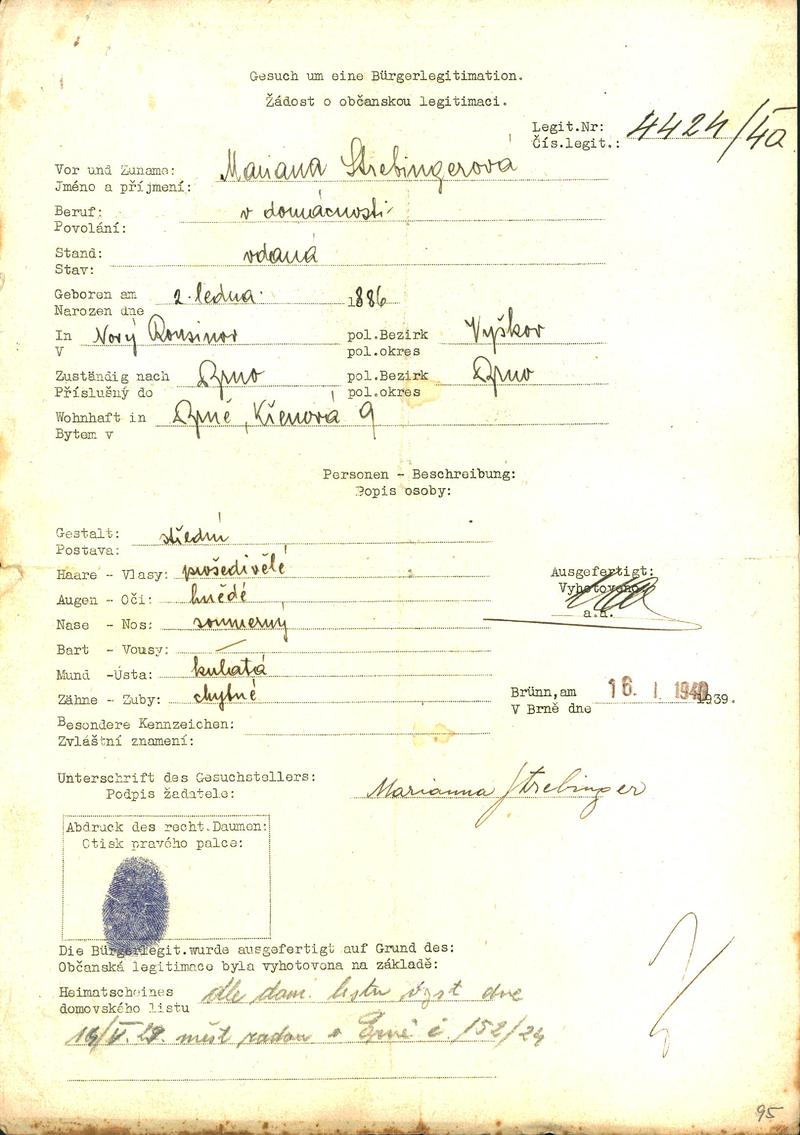 Gesuch um eine Bürgerlegitimation.
Žádost o občanskou legitimaci.
Legit.Nr: 4424/40
Čís.legit.:
Vor und Zuname: Mariana Strebingerová
Jméno a příjmení:
Beruf: v domácnosti
Povolání:
Stand: vdaná
Stav:
Geboren am 2. ledna 1886
Narozen dne
In Nový Rousinov pol.Bezirk Vyškov
V pol.okres
Zuständig nach Brno pol.Bezirk Brno
Příslušný do pol.okres
Wohnhaft in Brně, Křenová 9
Bytem v
Personen - Beschreibung:
Popis osoby:
Gestalt: střední
Postava:
Haare - Vlasy: prošedivělé
Augen - Oči: hnědé
Nase - Nos: souměrný
Bart - Vousy: —
Mund -Ústa: kulatá
Zähne - Zuby: chybné
Ausgefertigt:
Vyhotoveno:
a.h.
Brünn,am 16. I. 1940 1939.
V Brně dne
Besondere Kennzeichen:
Zvláštní znamení:
Unterschrift des Gesuchstellers: Marianna Strebinger
Podpis žadatele:
Abdruck des recht.Daumen:
Otisk pravého palce:
Die Bürgerlegit.wurde ausgefertigt auf Grund des:
Občanská legitimace byla vyhotovena na základě:
Heimatscheines dle dom. listu vyst dne
domovského listu
měst radou v Brně č. 152/24
95